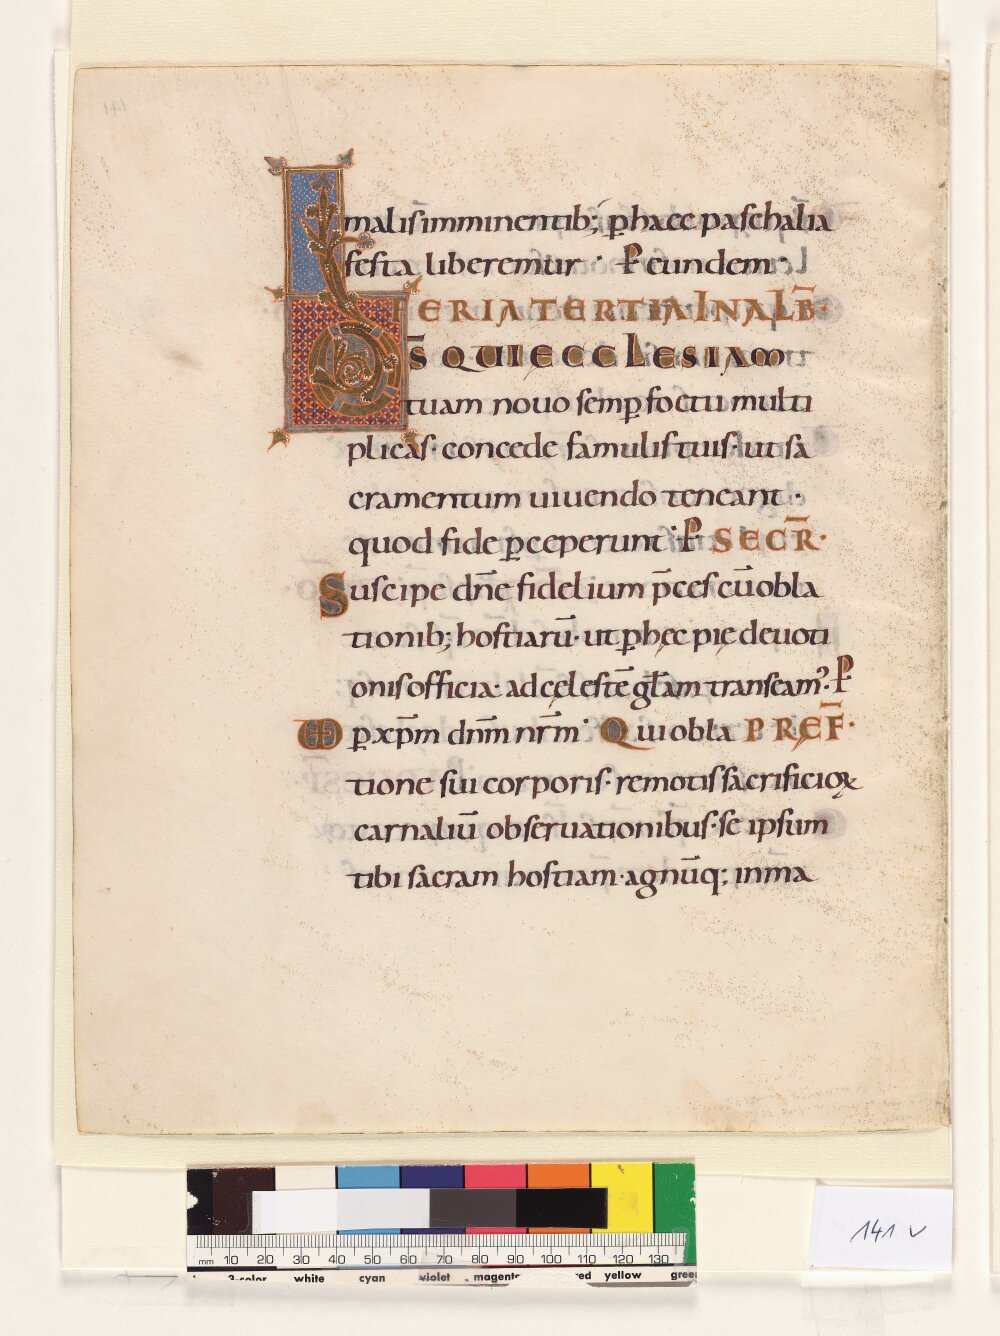 malis imminentib; p̱ haec paschalia
festa liberemur · P̱ eundem ·
FERIA TERTIA IN ALB̄·
D̄S QUI ECCLESIAM
tuam nouo semp̱ foetu multi
plicas· concede famulis tuis· ut sa
cramentum uiuendo teneant ·
quod fide p̱ceperunt · P̱ SECR̄·
Suscipe dn̄e fidelium p̄ces cū obla
tionib; hostiarū· ut p̱ hęc pię deuoti
onis officia· ad cęlestē gl̄am transeam᾽· P̱
VD p̱ xp̄m dnm̄ nr̄m· Qui obla PREF̄·
tione sui corporis· remotis sacrificioꝝ
carnaliū obseruationibus· se ipsum
tibi sacram hostiam· agnūq; inma
141 v
mm 10 20 30 40 50 60 70 80 90 100 110 120 130
3-color white cyan violet magenta red yellow green